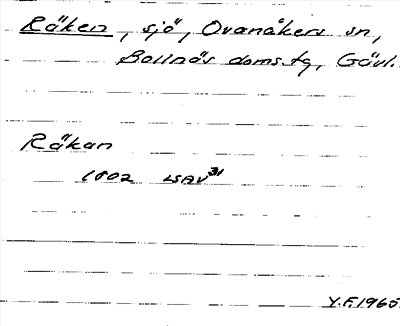 Räken, sjö, Ovanåkers sn,
Bollnäs doms.tg, Gävl.
Räkan
1802 LSAV 31
Y.F. 1965